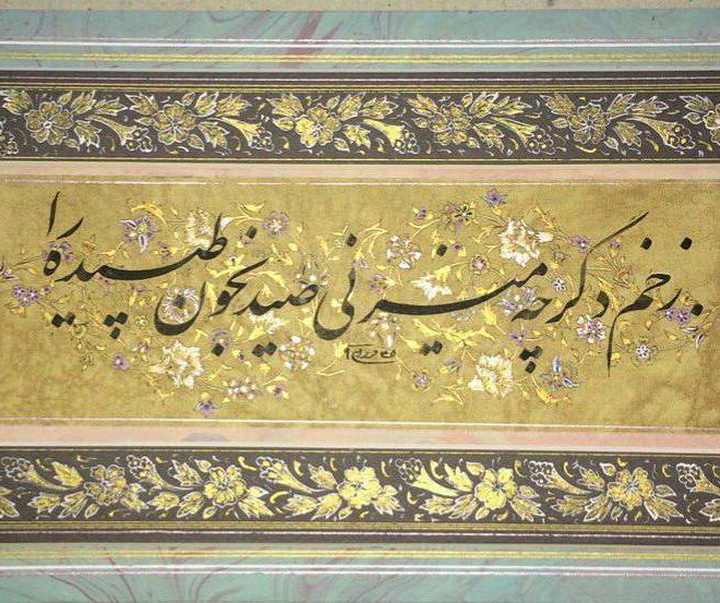 زخم دگر چه میزنی صید بخون طپیده را